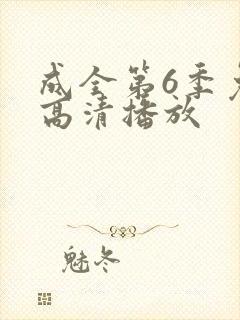 成全第6季
高清播放
魅冬